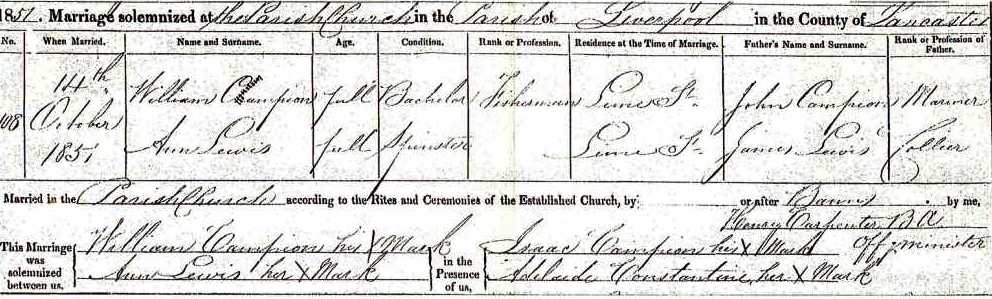 1851. Marriage solemnized at the Parish Church in the Parish of Liverpool in the County of Lancaster
No. When Married. Name and Surname. Age. Condition. Rank or Profession. Residence at the Time of Marriage. Father's Name and Surname. Rank or Profession of Father.
108 14th October 1851
William Campion full Bachelor Fisherman Lime St. John Campion Mariner
Ann Lewis full Spinster Lime St. James Lewis Collier
Married in the Parish Church according to the Rites and Ceremonies of the Established Church, by or after Banns by me,
Henry Carpenter B A
Off minister
This Marriage was solemnized between us,
William Campion his X Mark
Ann Lewis her X Mark
in the Presence of us,
Isaac Campion his X Mark
Adelaide Constantine her X Mark